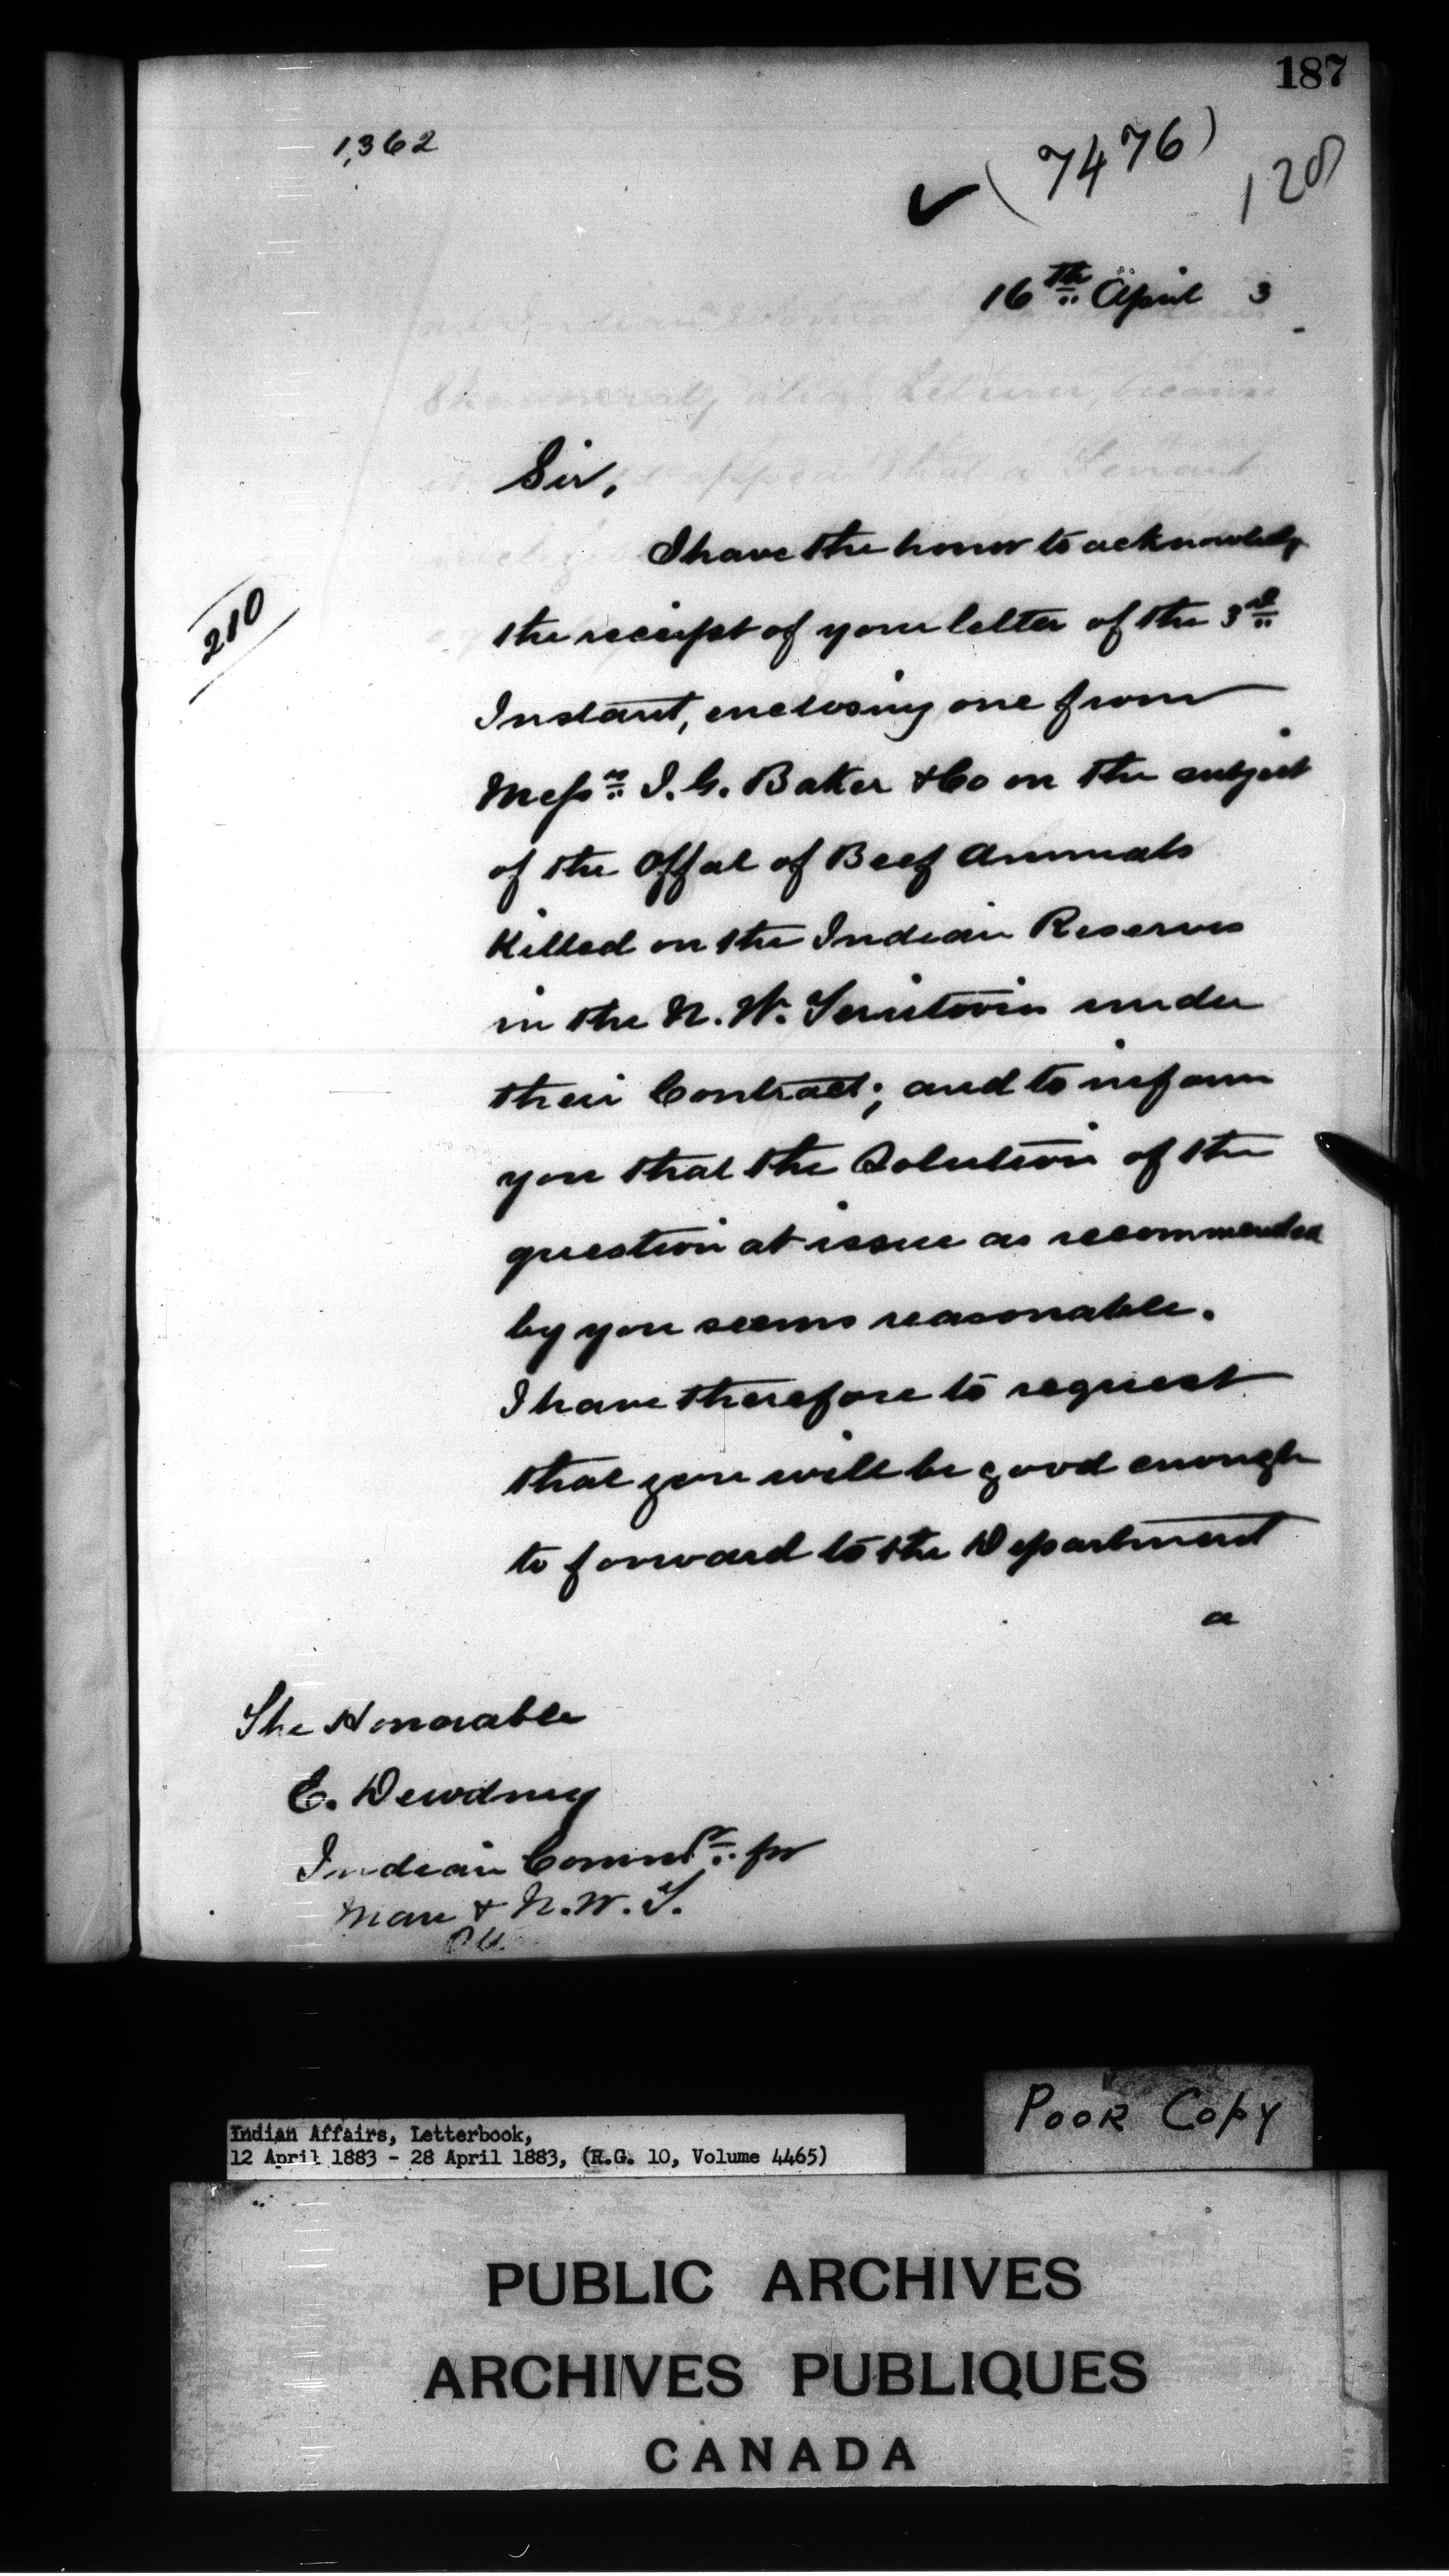 187
1,362
(7476)
128
16th April 3
Sir,
I have the honor to acknowledge
the receipt of your letter of the 3rd
Instant, enclosing one from
Messrs I. G. Baker & Co on the subject
of the Offal of Beef Animals
Killed on the Indian Reserves
in the N. W. Territories under
their Contract; and to inform
you that the Solution of the
question at issue as recommended
by you seems reasonable.
I have therefore to request
that you will be good enough
to forward to the Department
a
210
The Honorable
E. Dewdney
Indian Commr for
Man & N.W.T.
Poor Copy
Indian Affairs, Letterbook,
12 April 1883 - 28 April 1883, (R.G. 10, Volume 4465)
PUBLIC ARCHIVES
ARCHIVES PUBLIQUES
CANADA